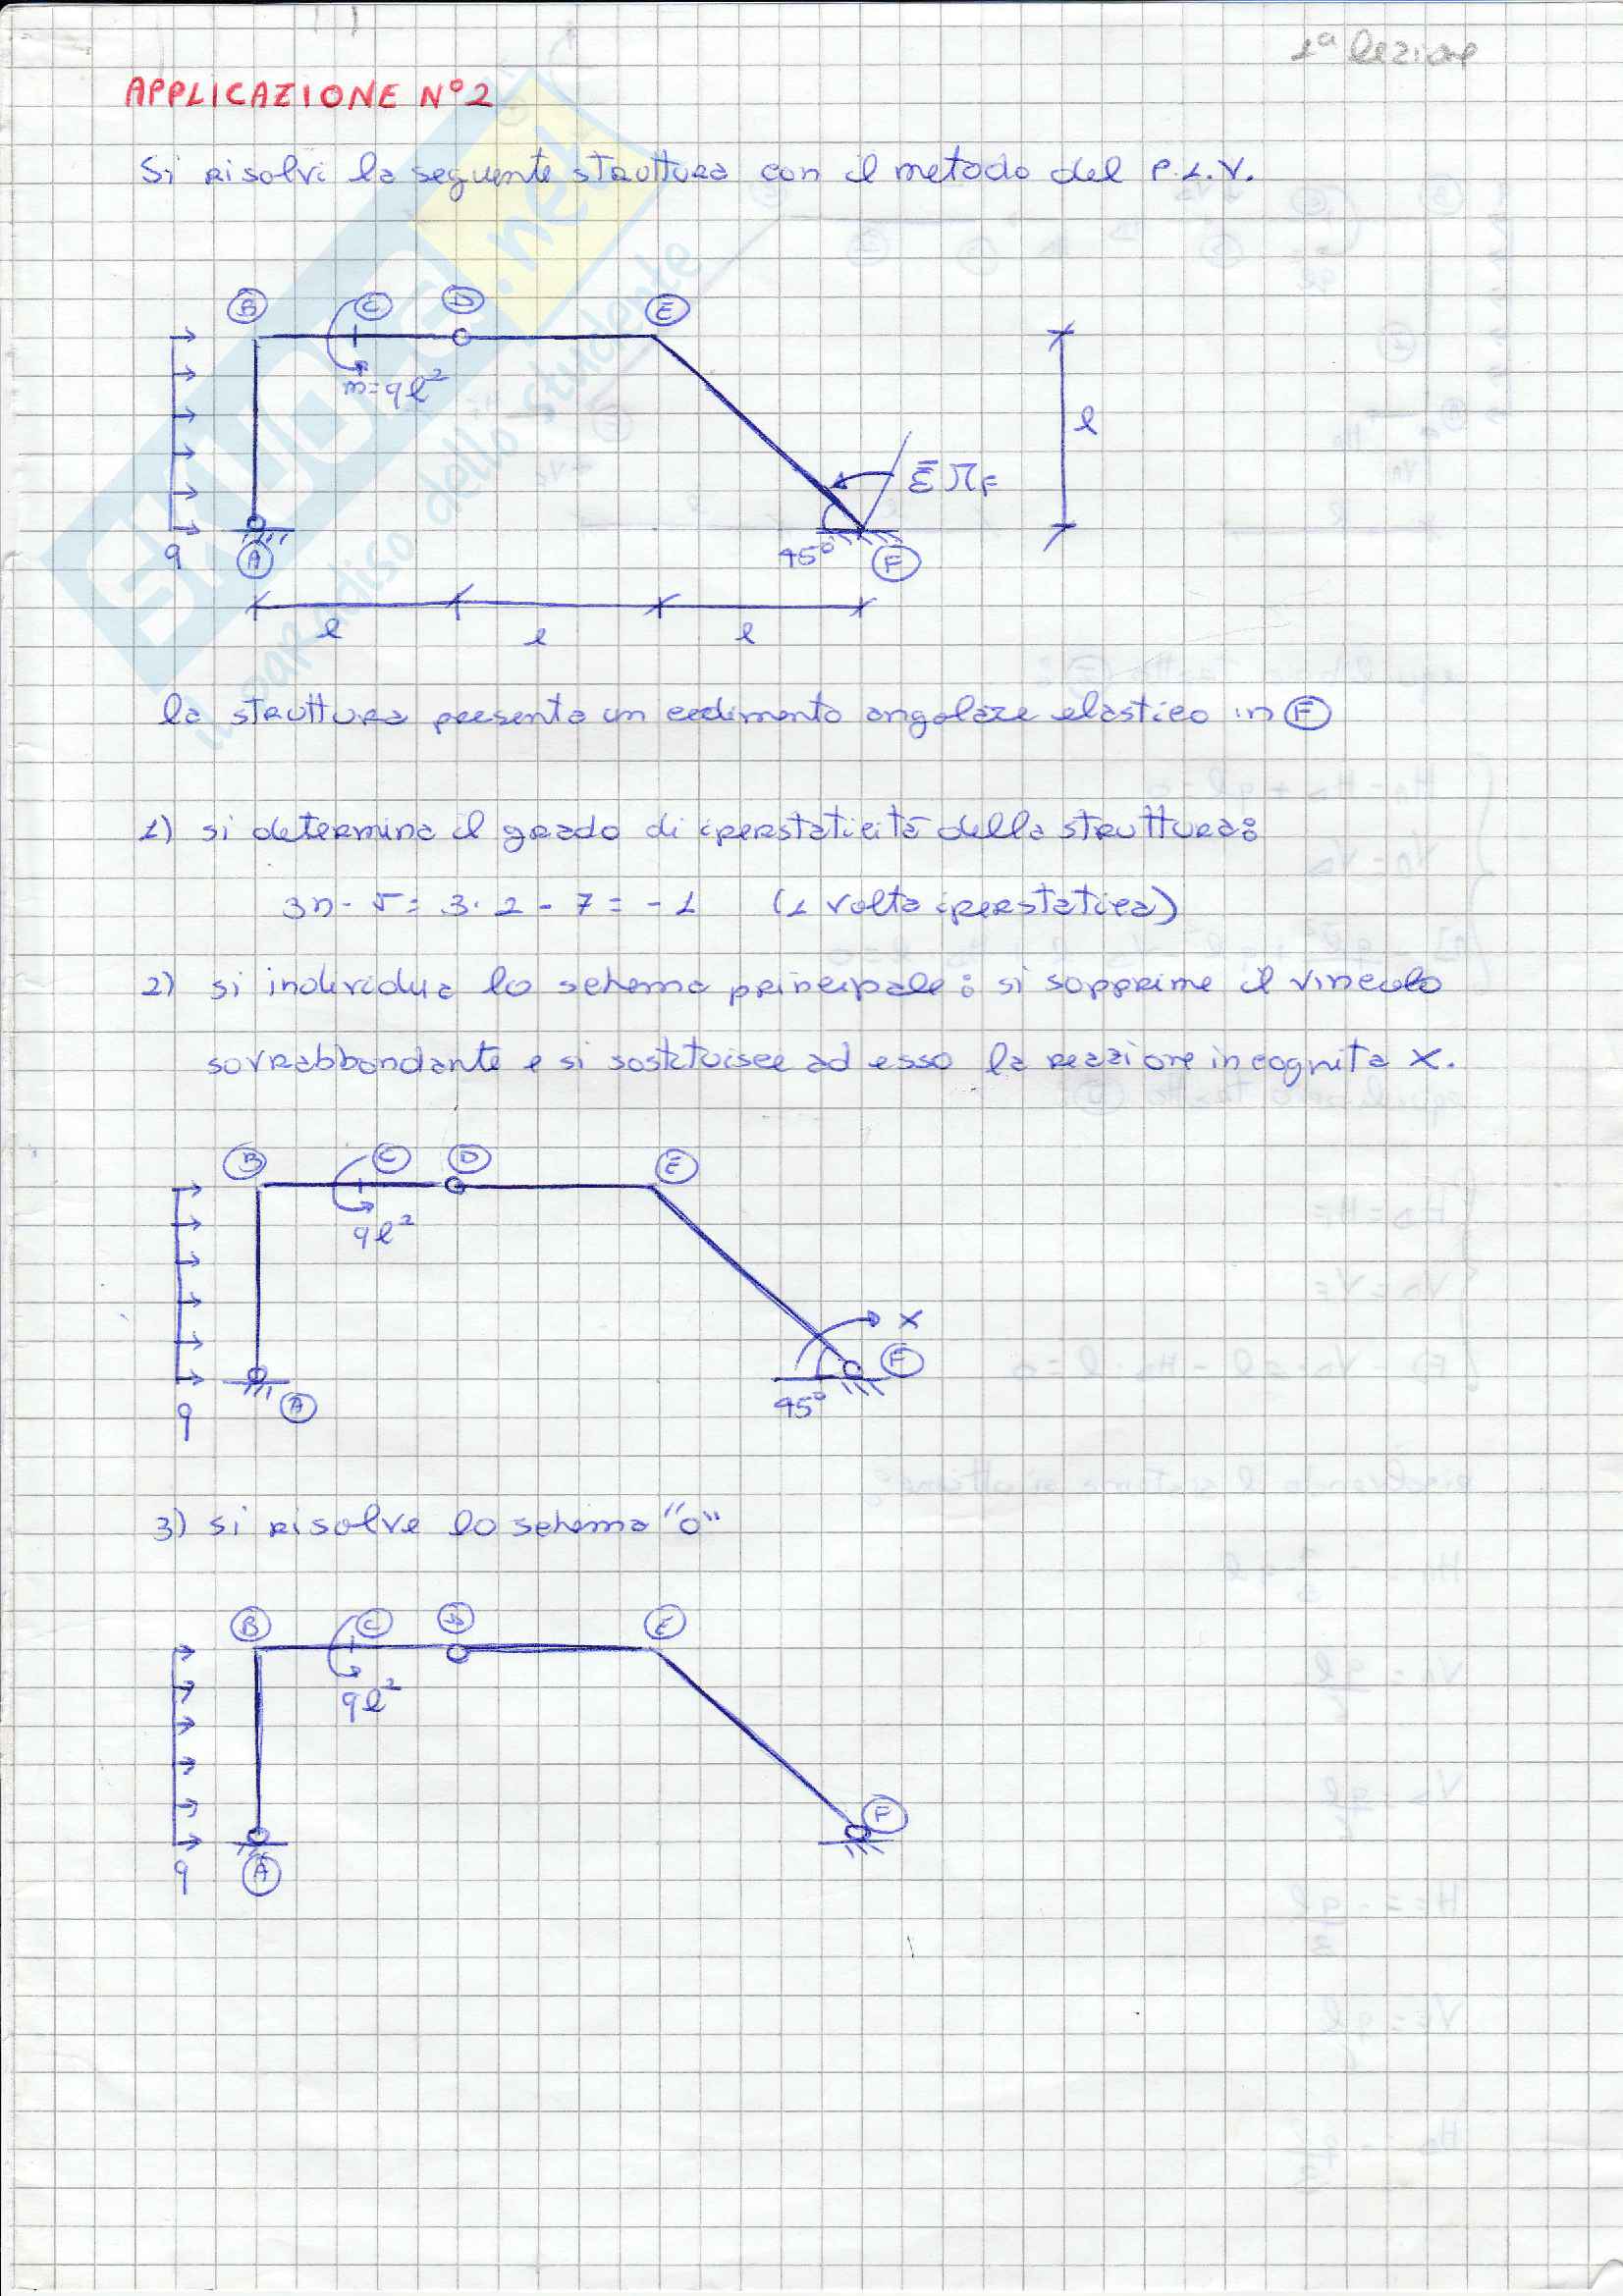 1ª lezione
APPLICAZIONE N°2
Si risolvi la seguente struttura con il metodo del P.L.V.
B C D E
m=ql²
l
ε̄ M_F
q A 45° F
l l l
la struttura presenta un cedimento angolare elastico in F
1) si determina il grado di iperstaticità della struttura:
3n - v = 3·2 - 7 = -1 (1 volta iperstatica)
2) si individua lo schema principale: si sopprime il vincolo
sovrabbondante e si sostituisce ad esso la reazione incognita X.
B C D E
ql²
X
F
q A 45°
3) si risolve lo schema "0"
B C D E
ql²
F
q A
SKUOLA.net
il paradiso dello studente